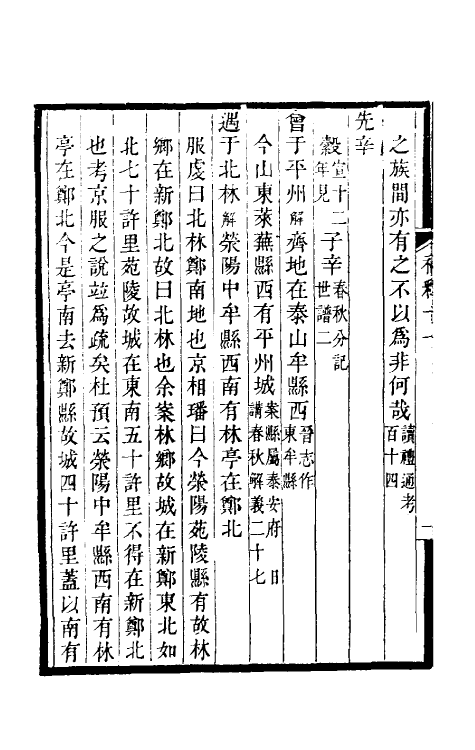 之族間亦有之不以爲非何哉讀禮通考百十四
先辛
穀宣十二年見子辛春秋分記世譜二
會于平州解齊地在泰山牟縣西晉志作東牟縣
今山東萊蕪縣西有平州城案縣屬泰安府　日講春秋解義二十七
遇于北林解滎陽中牟縣西南有林亭在鄭北
服虔曰北林鄭南地也京相璠曰今滎陽苑陵縣有故林
鄉在新鄭北故曰北林也余案林鄉故城在新鄭東北如
北七十許里苑陵故城在東南五十許里不得在新鄭北
也考京服之說竝爲疏矣杜預云滎陽中牟縣西南有林
亭在鄭北今是亭南去新鄭縣故城四十許里蓋以南有